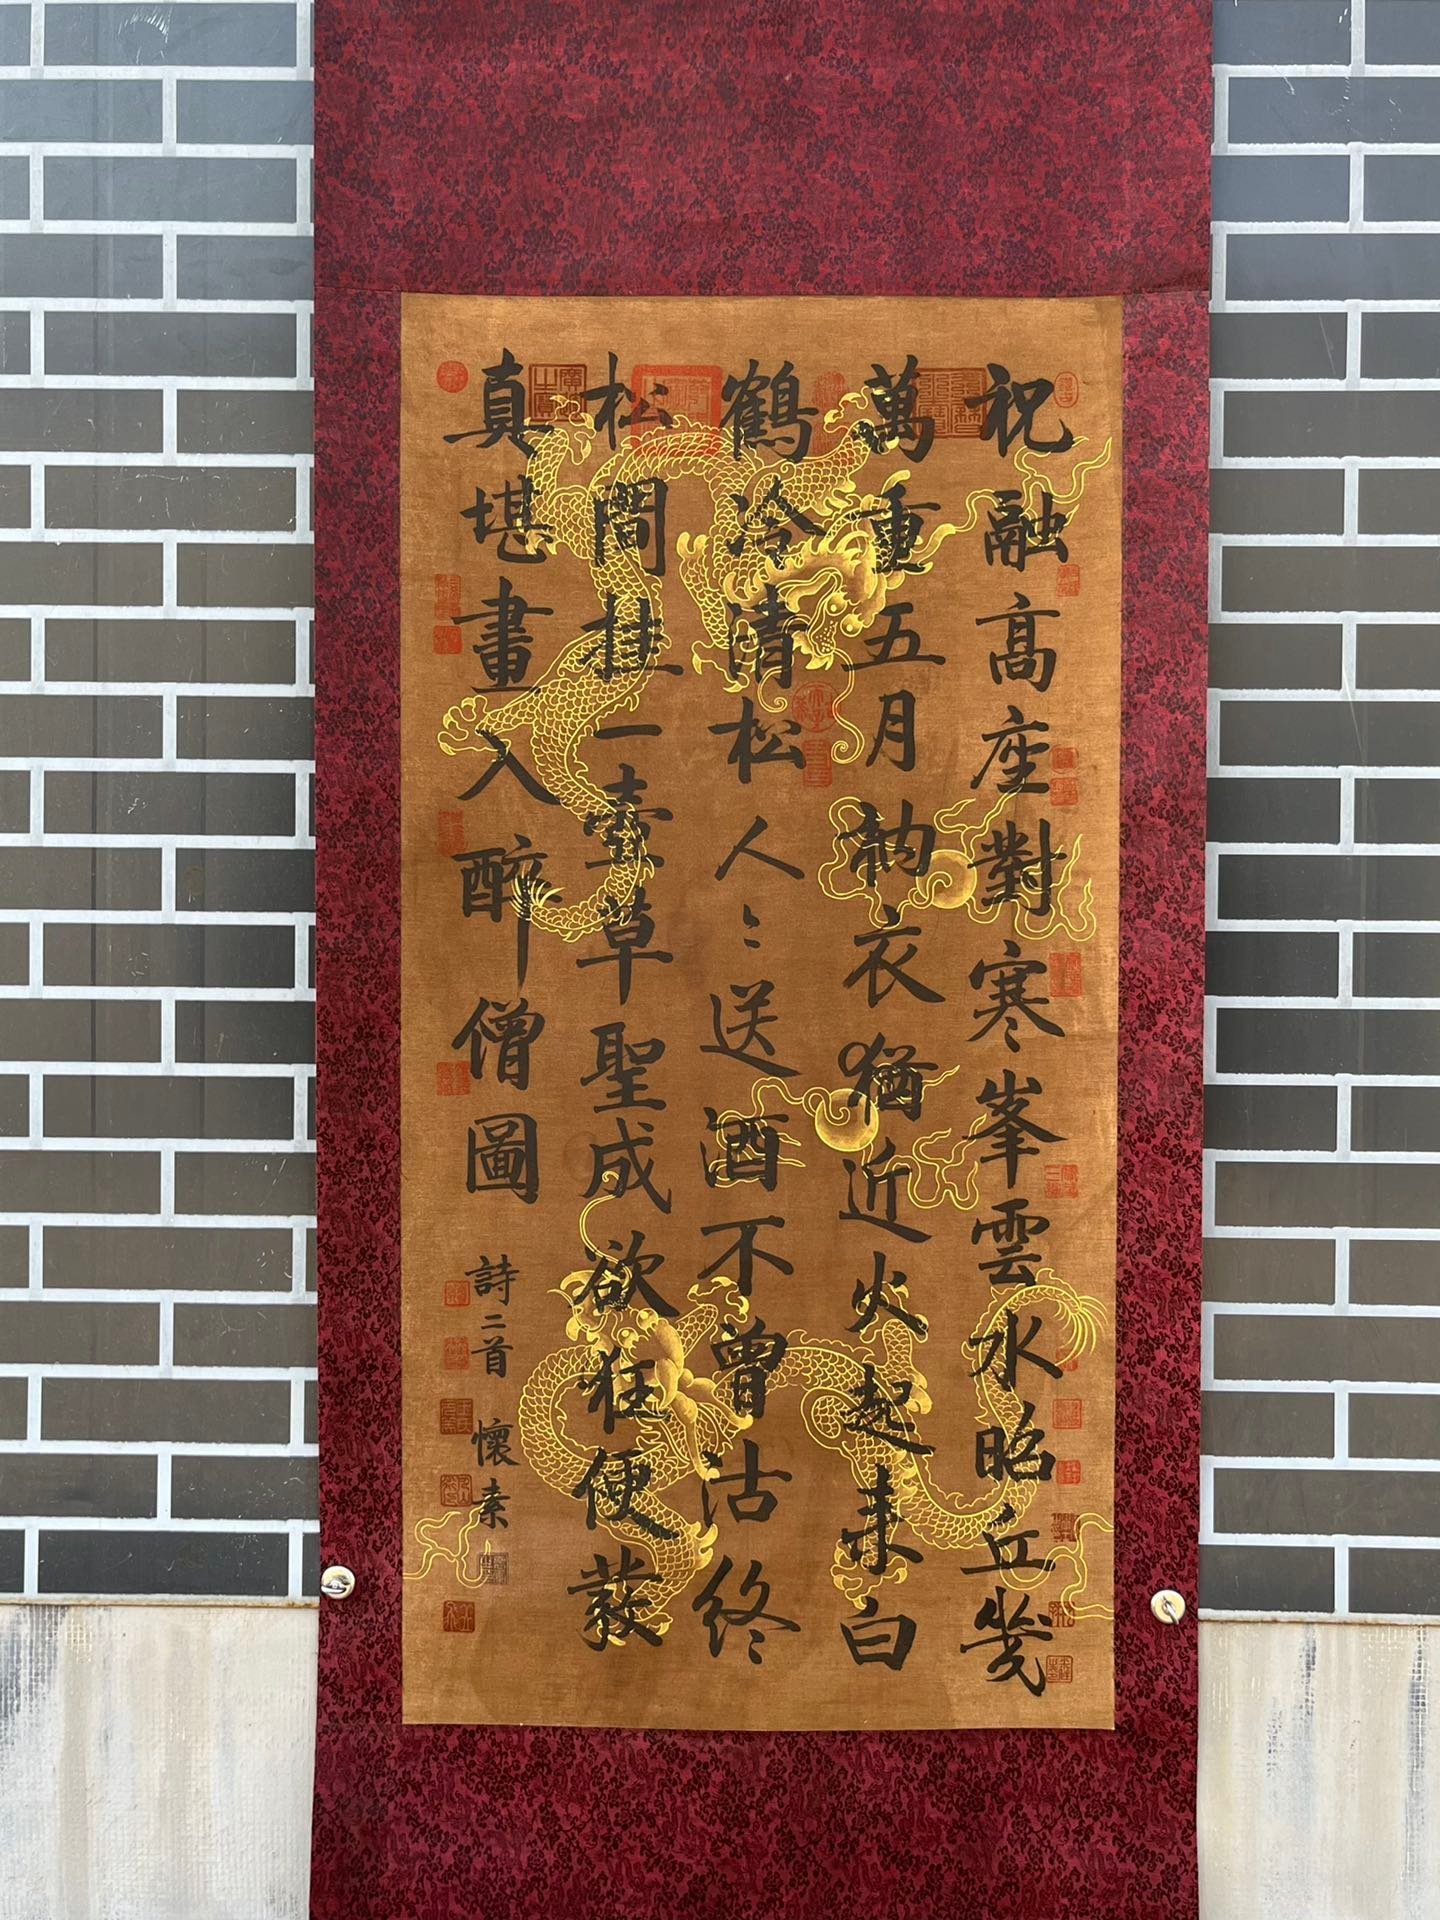 祝融高座對寒峯雲水昭丘幾
萬重五月衲衣猶近火起來白
鶴冷清松人〻送酒不曾沽終
松間挂一壺草聖成欲狂便發
真堪畫入醉僧圖
詩二首 懷素